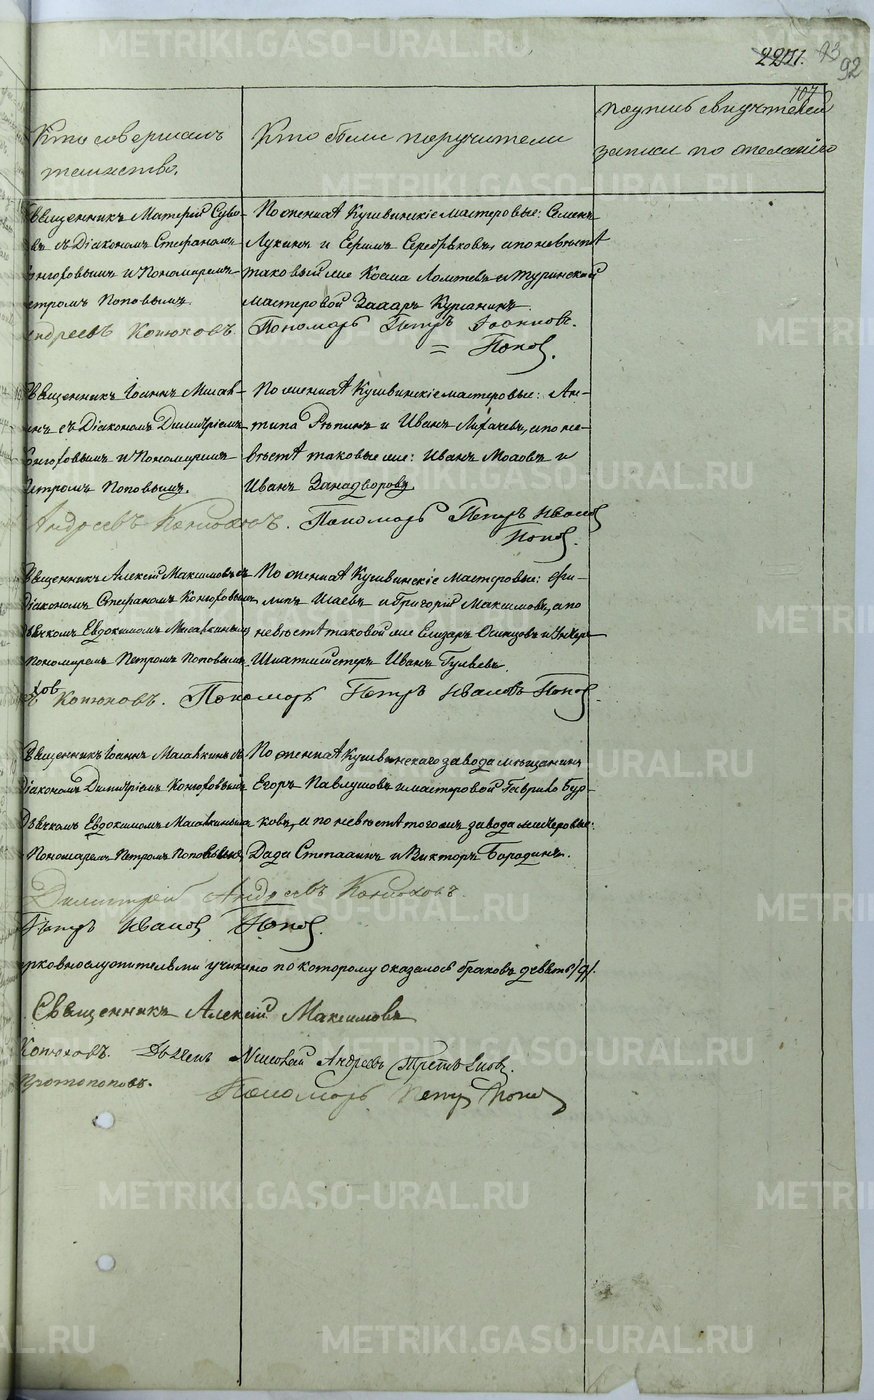 METRIKI.GASO-URAL.RU
92
107
Кто совершалъ таинство.
Кто были поручители
подпись свидѣтелей записи по желанію
Священникъ Матѳей
въ съ Діакономъ Стефаномъ
Конюховымъ и Пономаремъ
Петромъ Поповымъ.
Андреевъ Конюховъ.
По женихѣ Кушвинскіе мастеровые: Семенъ
Лукинъ и Ефимъ Серебряковъ, а по невѣстѣ
таковый же Косма Ломтевъ и Туринской
мастеровой Захаръ Курганинъ.
Пономарь Петръ Іоанновъ
Поповъ.
Священникъ Іоаннъ
съ Діакономъ Димитріемъ
Конюховымъ и Пономаремъ
Петромъ Поповымъ.
По женихѣ Кушвинскіе мастеровые: Ан-
типа Рѣпинъ и Иванъ Лихачевъ, а по не-
вѣстѣ таковые же: Иванъ Моховъ и
Иванъ Занадворовъ.
Андреевъ Конюховъ. Пономарь Петръ Ивановъ
Поповъ.
Священникъ Алексій Максимовъ съ
Діакономъ Стефаномъ Конюховымъ,
Дьячкомъ Евдокимомъ
Пономаремъ Петромъ Поповымъ.
По женихѣ Кушвинскіе мастеровые: Фи-
липъ Исаевъ и Григорій Максимовъ, а по
невѣстѣ таковой же Елизаръ Осинцовъ и Унтеръ
Шихтмейстеръ Иванъ Гуляевъ.
Конюховъ. Пономарь Петръ Ивановъ Поповъ.
Священникъ Іоаннъ съ
Діакономъ Димитріемъ Конюховымъ
Дьячкомъ Евдокимомъ
Пономаремъ Петромъ Поповымъ.
По женихѣ Кушвинскаго завода мѣщанинъ
Егоръ Павлушовъ и мастеровой Гаврило Бур-
ковъ, а по невѣстѣ того жъ завода мастеровые:
Степанинъ и Викторъ Бородинъ.
Димитрій Андреевъ Конюховъ.
Петръ Ивановъ Поповъ.
церковнослужителями учинено по которому оказалось браковъ девять /9/.
Священникъ Алексій Максимовъ
Конюховъ. Дьячекъ Андреевъ
Протопоповъ.
Пономарь Петръ Поповъ